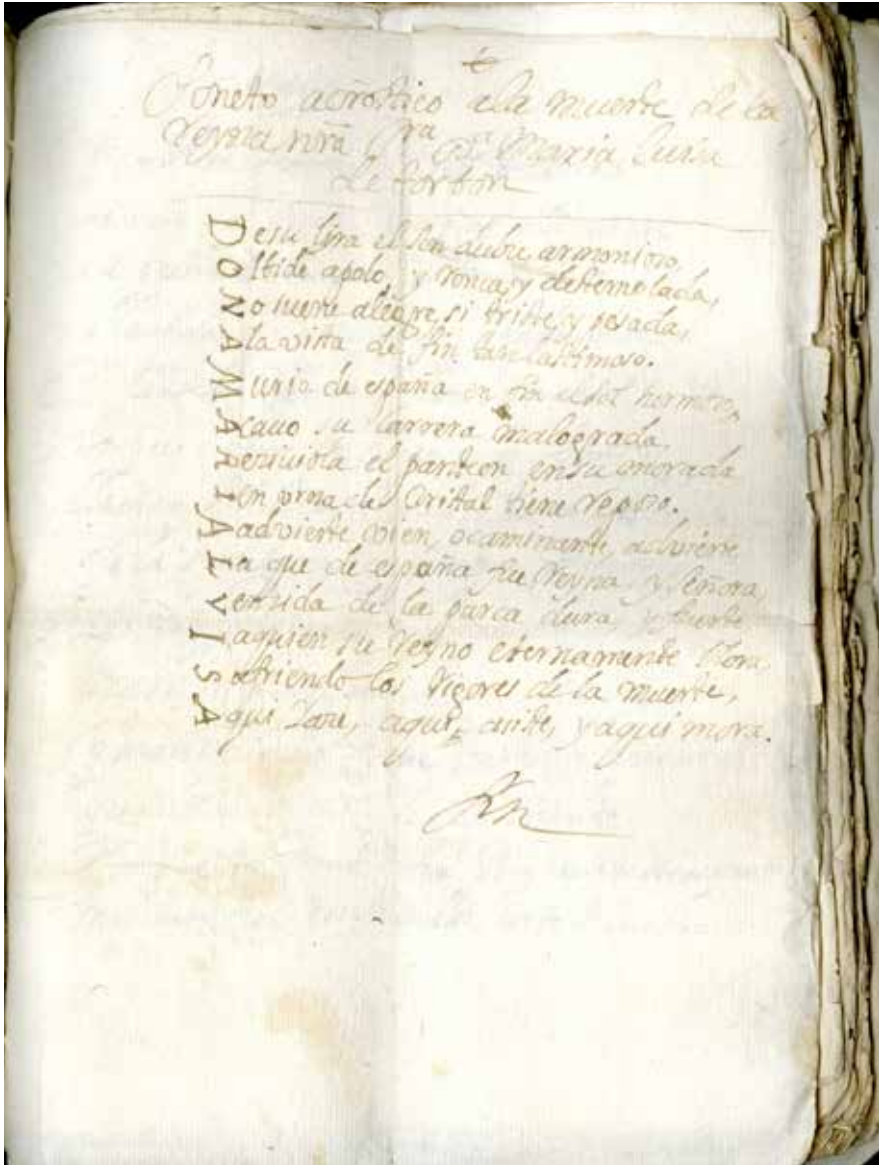 Soneto acrostico a la muerte de la
Reyna nrã Sra Da Maria Luisa
de borbon
De su lyra el son dulce, armonioso,
Oluide apolo, y ronca, y destemplada,
No suene alegre, si triste, y pesada,
A la vista de fin tan lastimoso.
Murio de españa en fin el sol hermoso,
Acauo su carrera malograda,
Reciuiola el panteon en su morada
In vrna de Cristal tiene reposo.
Aadvierte vien, o caminante, advierte
La que de españa fue Reyna y Señora,
Vencida de la parca dura, y fuerte
I aquien su reyno eternamente llora
Sufriendo los rigores de la muerte,
Aqui Yace, aqui, asiste, y aqui mora.